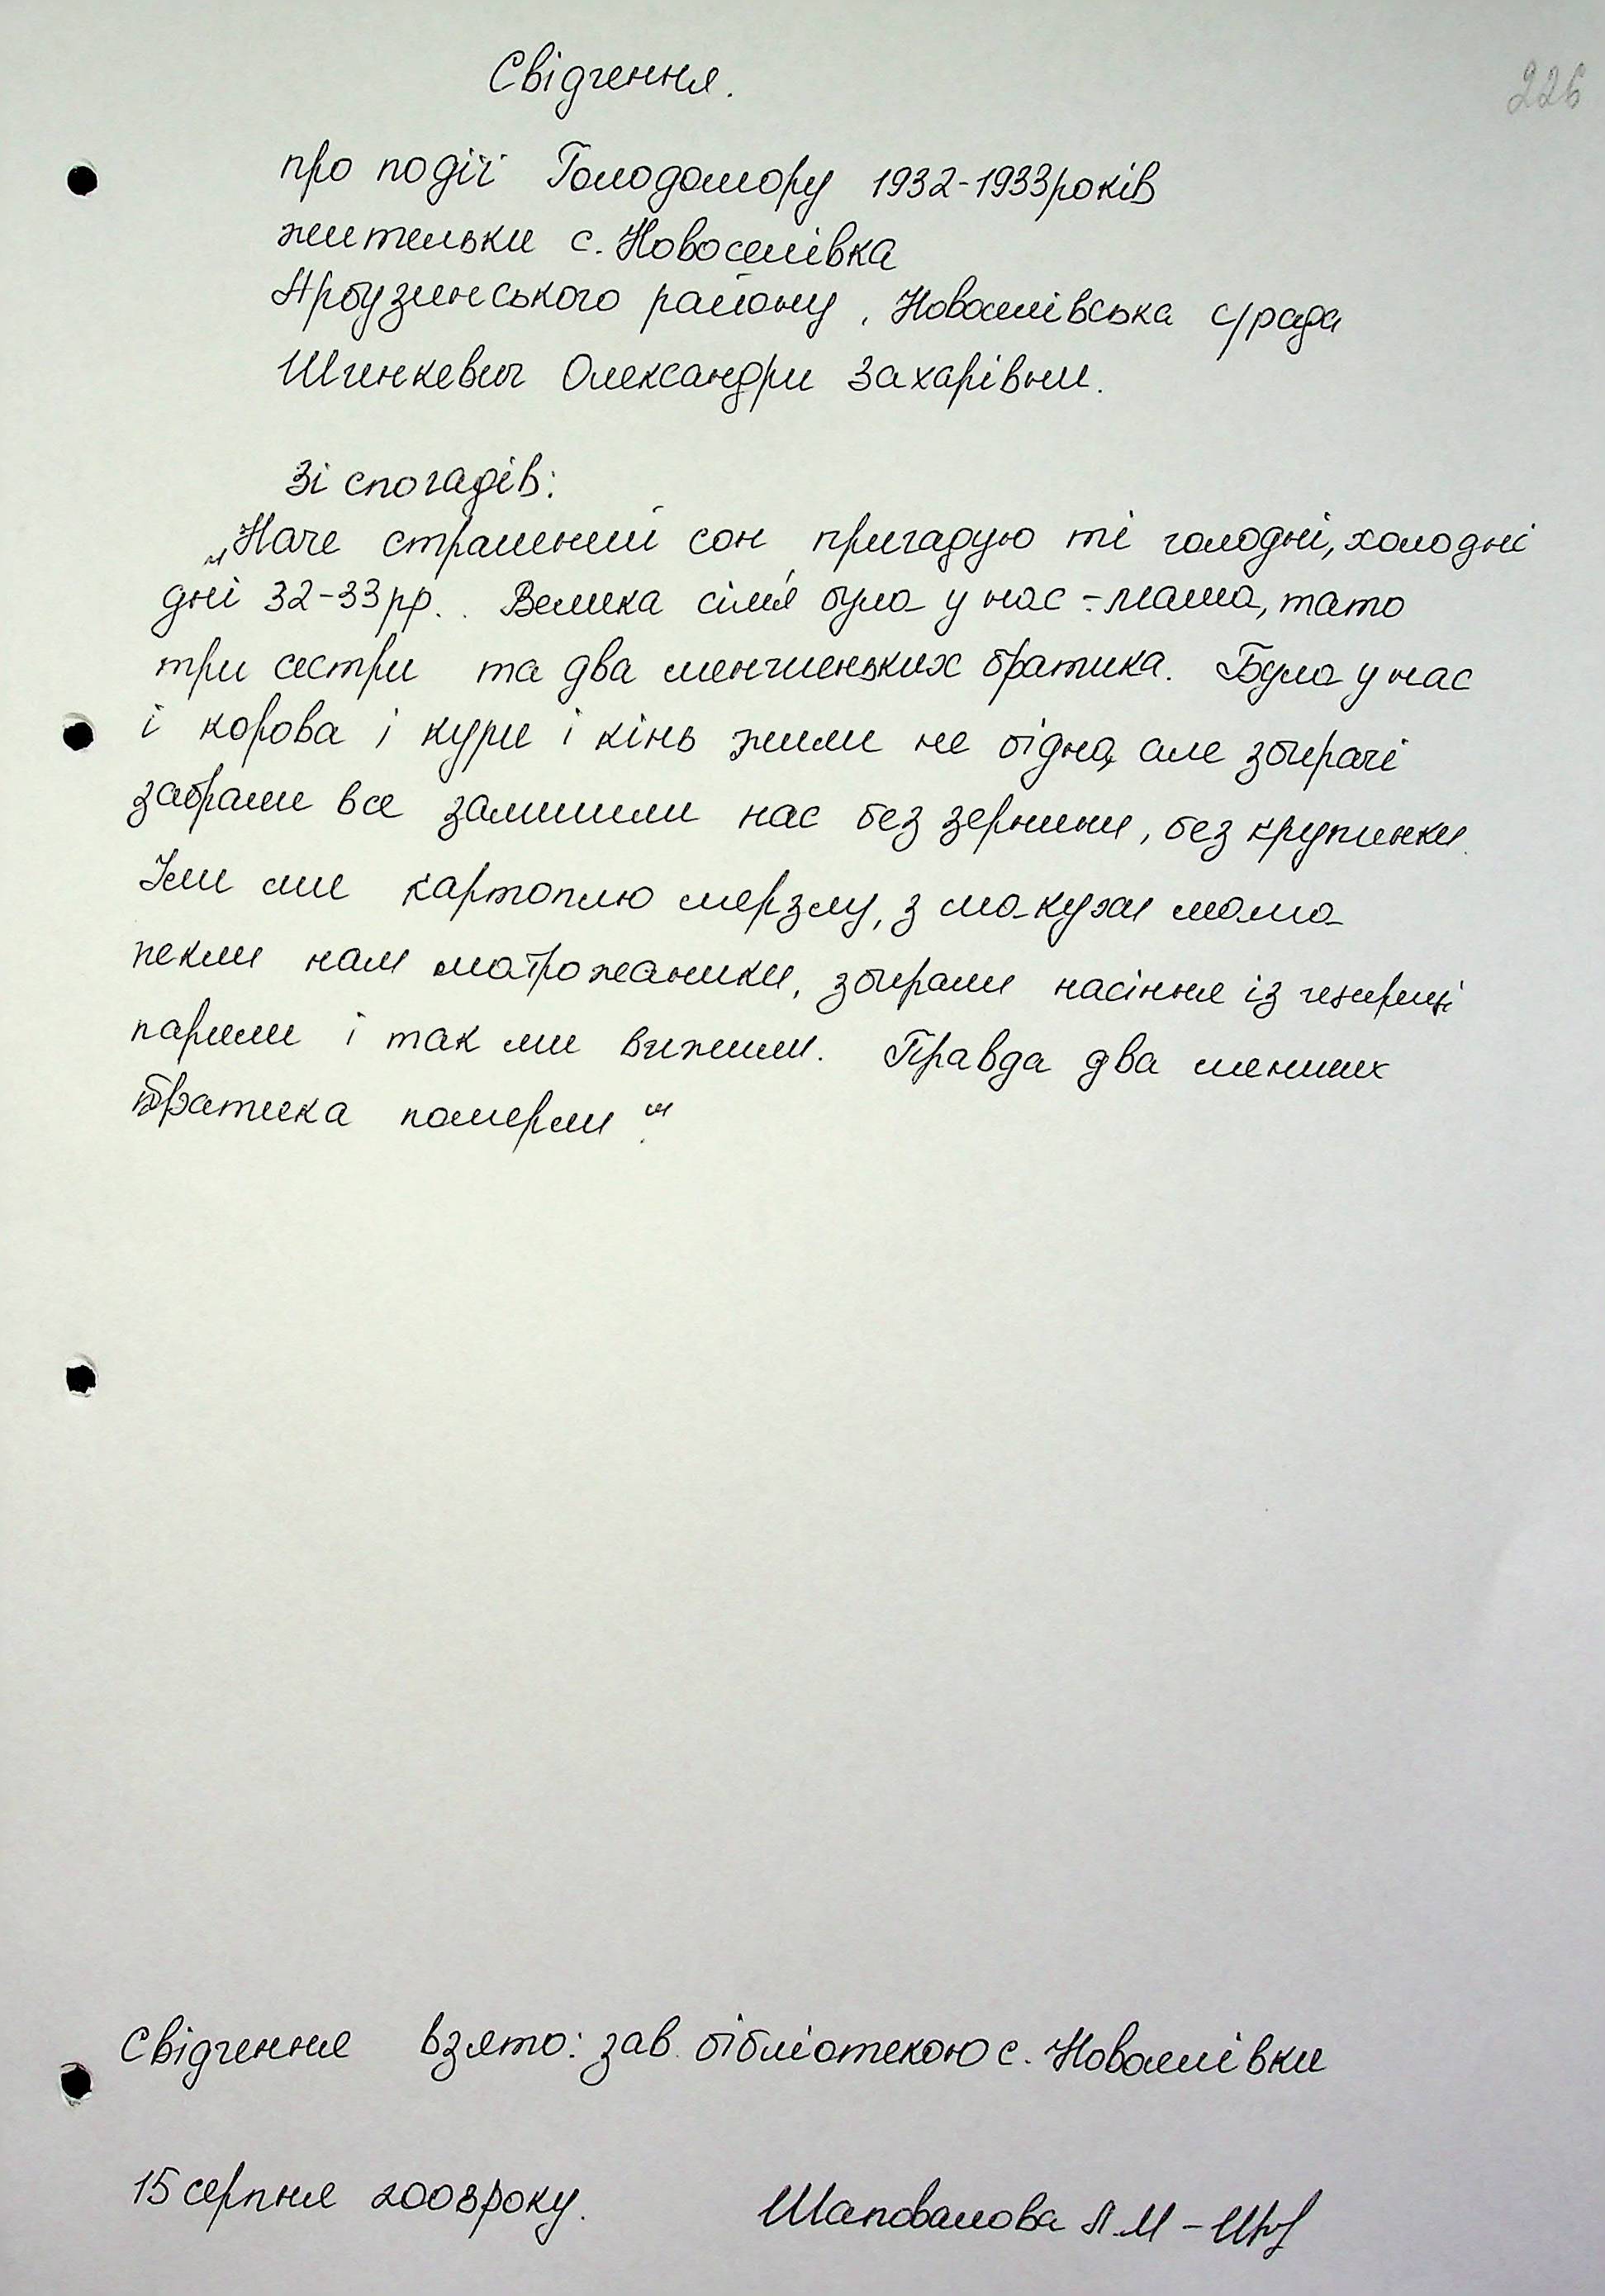 226
Свідчення.
про події Голодомору 1932-1933 років
жительки с. Новоселівка
Арбузинського району, Новоселівська с/рада
Шинкевич Олександри Захарівни.
Зі спогадів:
„Наче страшний сон пригадую ті голодні, холодні
дні 32-33 рр.. Велика сім'я була у нас - мама, тато
три сестри та два менчиеньких братика. Була у нас
і корова і кури і кінь жили не бідно, але збирачі
забрали все залишили нас без зернини, без крупинки.
Їли ми картоплю мерзлу, з макухи мама
пекли нам маторжаники, збирали насіння із щириці
парили і так ми вижили. Правда два менших
братика померли."
Свідчення взято: зав. бібліотекою с. Новоселівки
15 серпня 2008 року. Шаповалова Л.М -